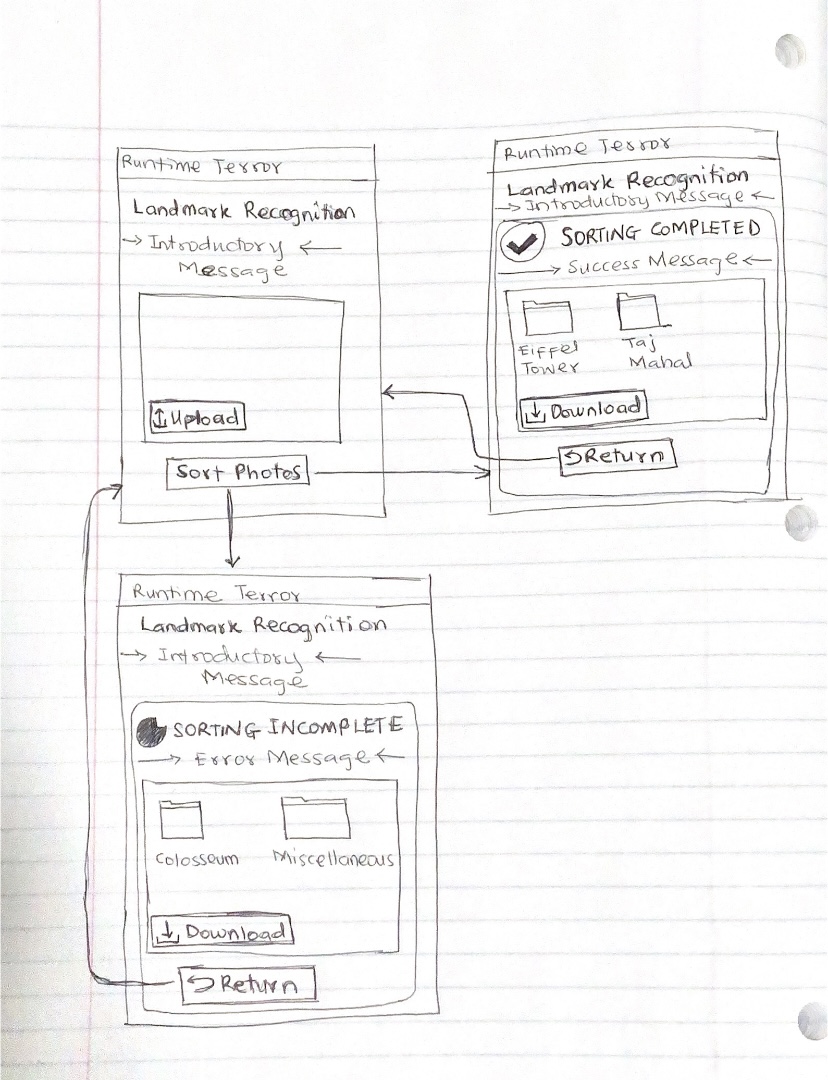 Runtime Terror
Landmark Recognition
→ Introductory ←
Message
Upload
Sort Photos
Runtime Terror
Landmark Recognition
→ Introductory Message ←
SORTING COMPLETED
→ Success Message ←
Eiffel
Tower
Taj
Mahal
Download
Return
Runtime Terror
Landmark Recognition
→ Introductory ←
Message
SORTING INCOMPLETE
→ Error Message ←
Colosseum
Miscellaneous
Download
Return